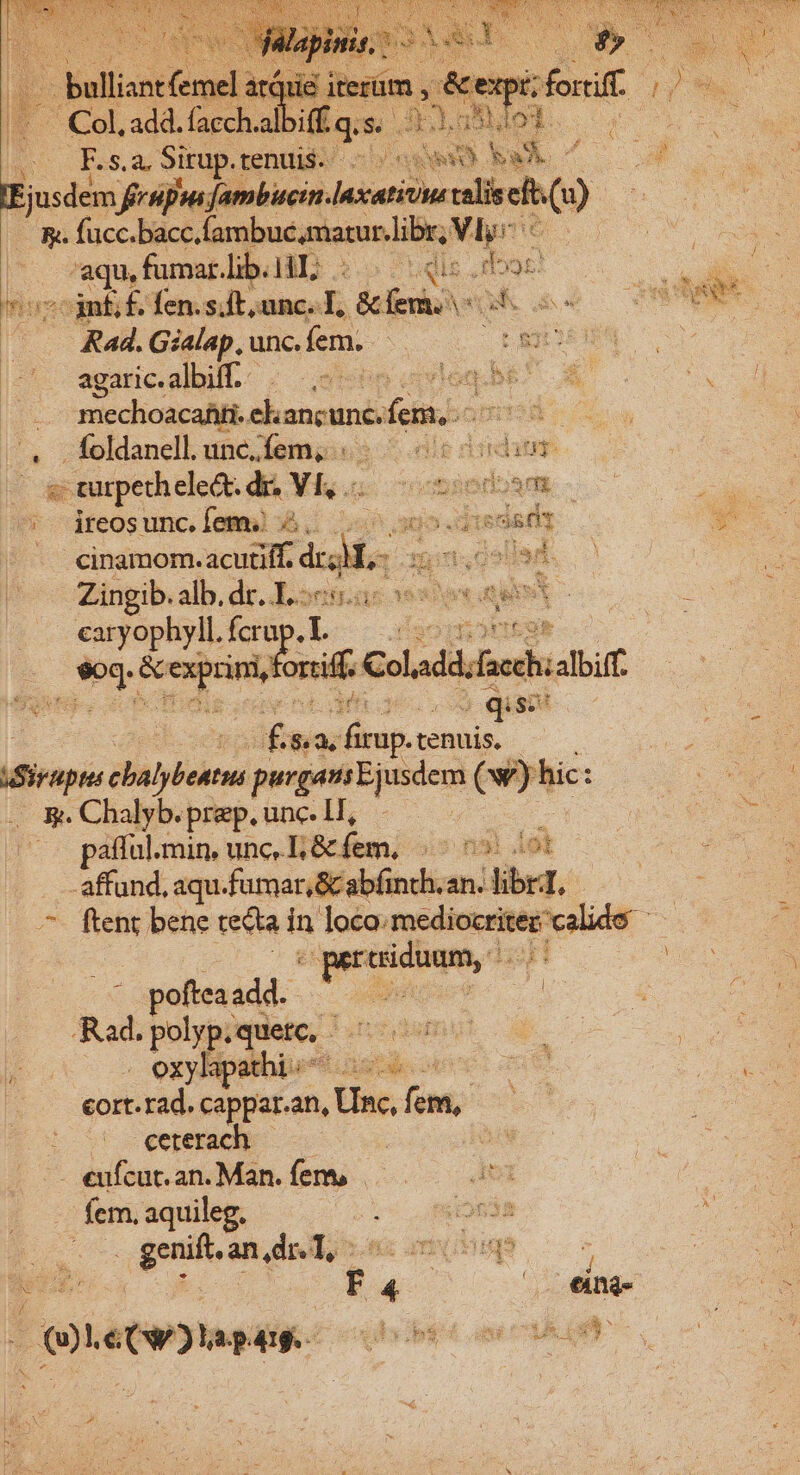 jalapinis,
bulliant semel atque iterum, & expr, fortiss.
Col, add. sacch. albiss. q. s.
F. s. a. Sirup. tenuis.
Ejusdem sirupus sambucin. laxativus talis est. (u)
℞. succ. bacc, sambuc, matur. libr, VI,
aqu, fumar. lib. III,
inf, f. sen. s. st, unc. I, & sem.
Rad. Gialap, unc. sem.
agaric. albiss.
mechoacann. el. an, unc. sem,
soldanell. unc, sem,
turpeth elect. dr. VI,
ireos unc. sem.
cinamom. acutiss. dr.
Zingib. alb, dr. I.
caryophyll. scrup. I.
coq. & exprim, fortiss. Col, add, sacch, albiss.
q. s.
f. s. a, sirup. tenuis.
Sirupus chalybeatus purgans Ejusdem (w) hic:
℞. Chalyb. præp, unc. II,
passul. min, unc, I, & sem,
affund, aqu. fumar, & absinth. an. libr. I,
stent bene tecta in loco mediocriter calido
per triduum,
postea add.
Rad. polyp, querc,
oxylapathi
cort. rad. cappar. an, Unc, sem,
ceterach
cuscut. an. Man. sem,
sem, aquileg.
genist. an, dr. I,
F 4 cina-
(u) l. c (w) l. a. p. 419.